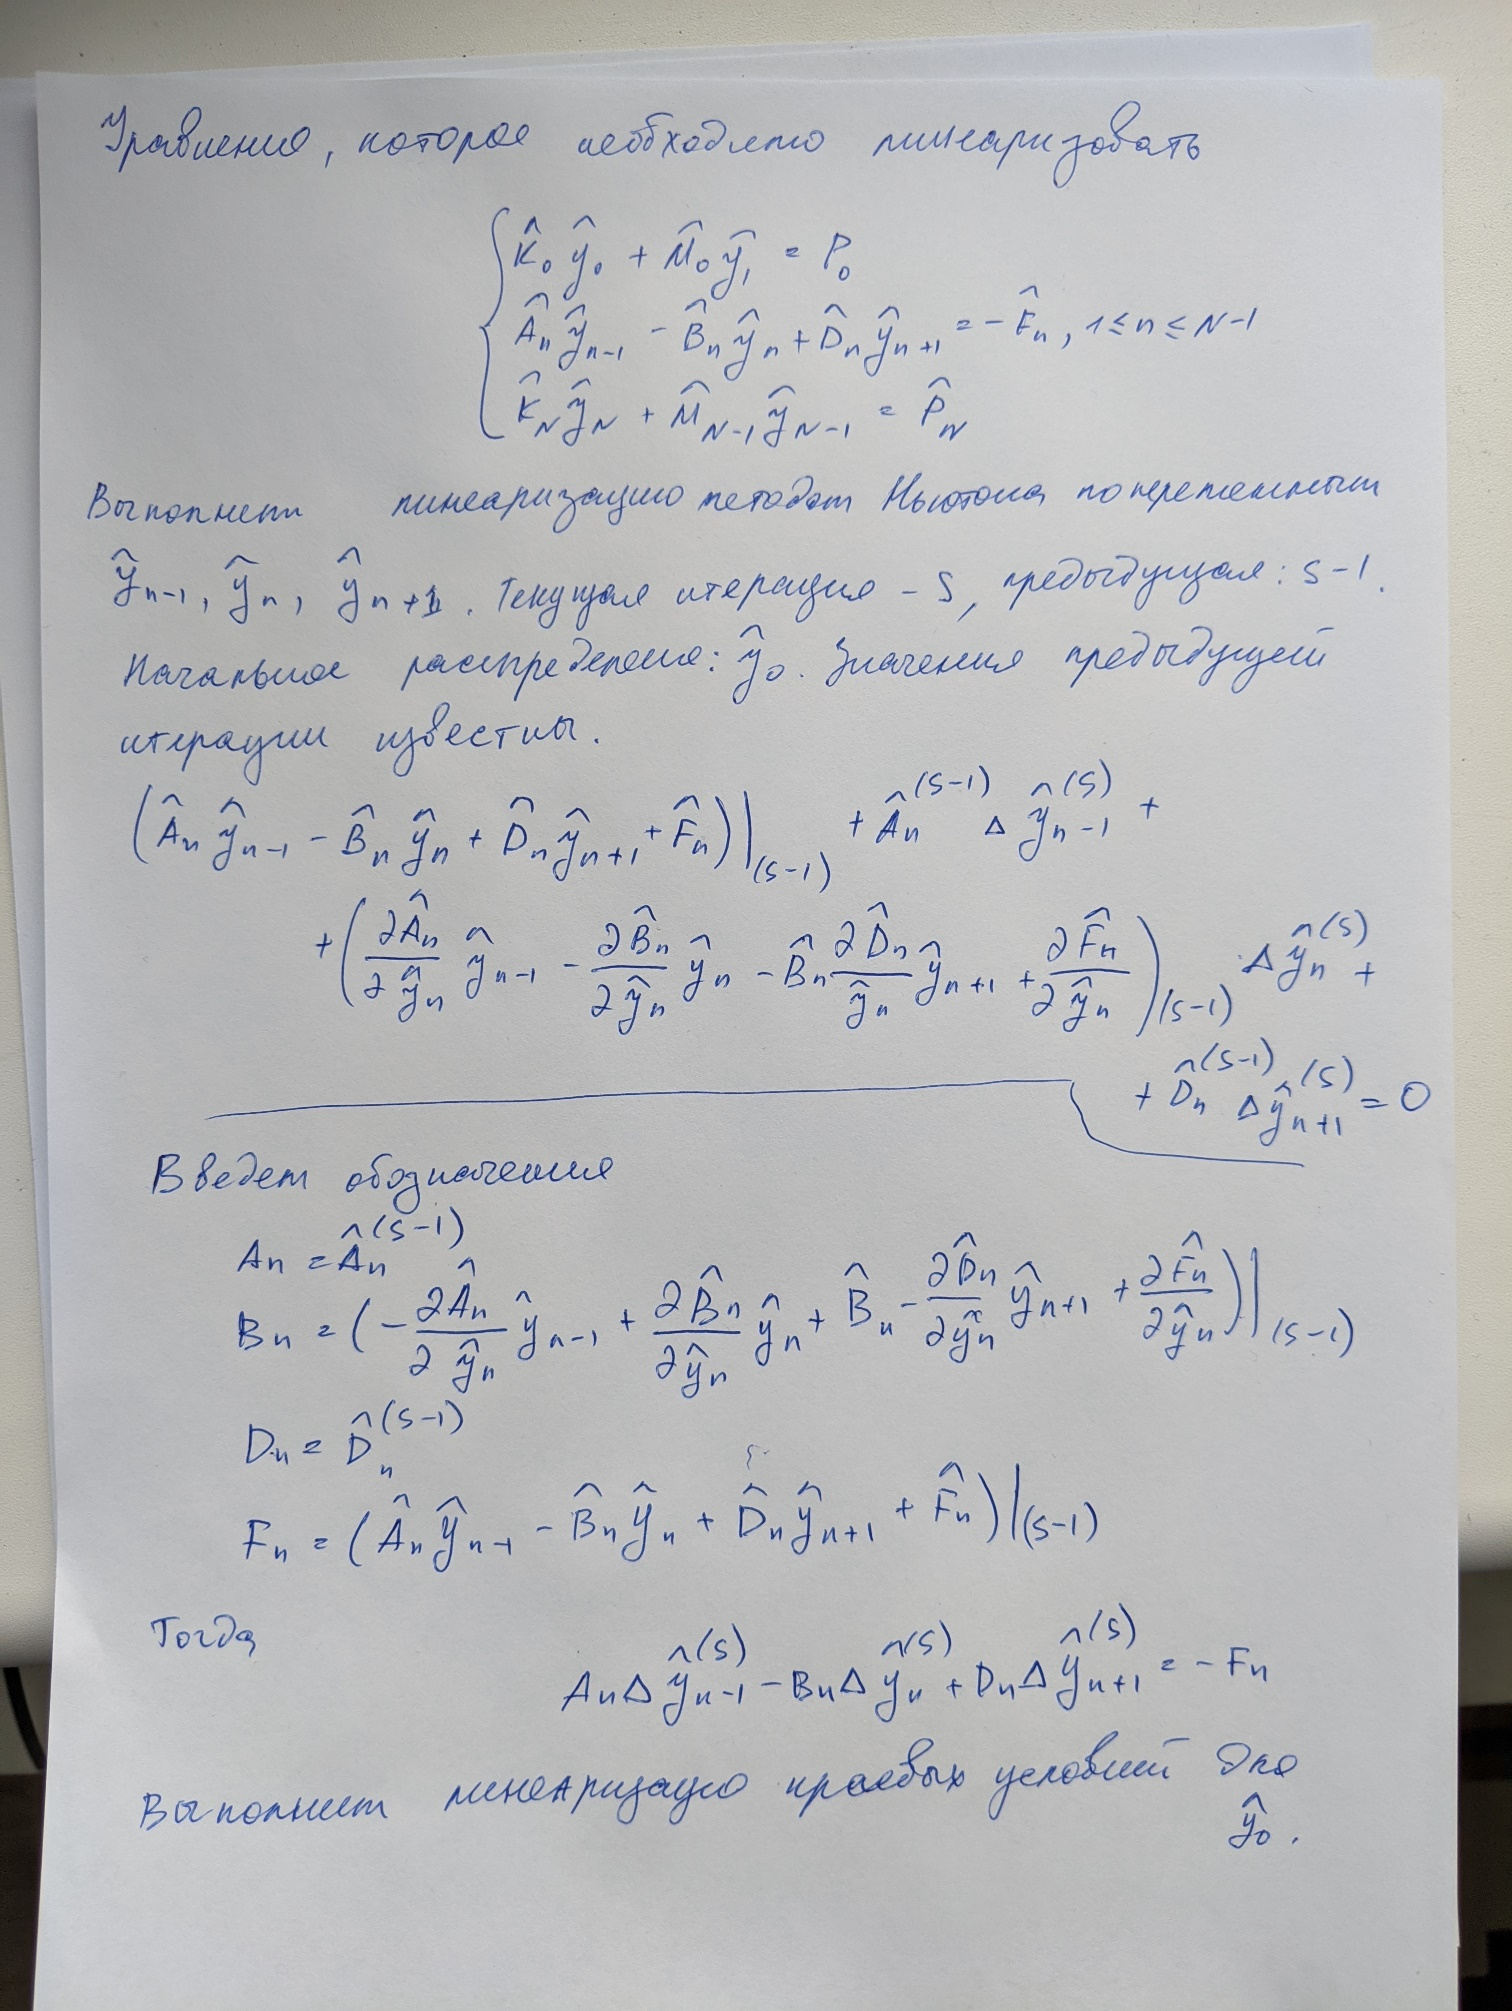 Уравнение, которое необходимо линеаризовать
K̂₀ ŷ₀ + M̂₀ ŷ₁ = P₀
Âₙ ŷₙ₋₁ - B̂ₙ ŷₙ + D̂ₙ ŷₙ₊₁ = - F̂ₙ, 1 ≤ n ≤ N-1
K̂_N ŷ_N + M̂_{N-1} ŷ_{N-1} = P̂_N
Выполним линеаризацию методом Ньютона по переменным
ŷₙ₋₁, ŷₙ, ŷₙ₊₁. Текущая итерация - s, предыдущая: s-1.
Начальное распределение: ŷ₀. Значения предыдущей
итерации известны.
(Âₙ ŷₙ₋₁ - B̂ₙ ŷₙ + D̂ₙ ŷₙ₊₁ + F̂ₙ)|_(s-1) + Âₙ^(s-1) Δŷₙ₋₁^(s) +
+ (∂Âₙ/∂ŷₙ ŷₙ₋₁ - ∂B̂ₙ/∂ŷₙ ŷₙ - B̂ₙ ∂D̂ₙ/ŷₙ ŷₙ₊₁ + ∂F̂ₙ/∂ŷₙ)|_(s-1) · Δŷₙ^(s) +
+ D̂ₙ^(s-1) Δŷₙ₊₁^(s) = 0
Введем обозначения
Aₙ = Âₙ^(s-1)
Bₙ = (- ∂Âₙ/∂ŷₙ ŷₙ₋₁ + ∂B̂ₙ/∂ŷₙ ŷₙ + B̂ₙ - ∂D̂ₙ/∂ŷₙ ŷₙ₊₁ + ∂F̂ₙ/∂ŷₙ)|_(s-1)
Dₙ = D̂ₙ^(s-1)
Fₙ = (Âₙ ŷₙ₋₁ - B̂ₙ ŷₙ + D̂ₙ ŷₙ₊₁ + F̂ₙ)|_(s-1)
Тогда
AₙΔŷₙ₋₁^(s) - BₙΔŷₙ^(s) + DₙΔŷₙ₊₁^(s) = - Fₙ
Выполним линеаризацию краевых условий для
ŷ₀.